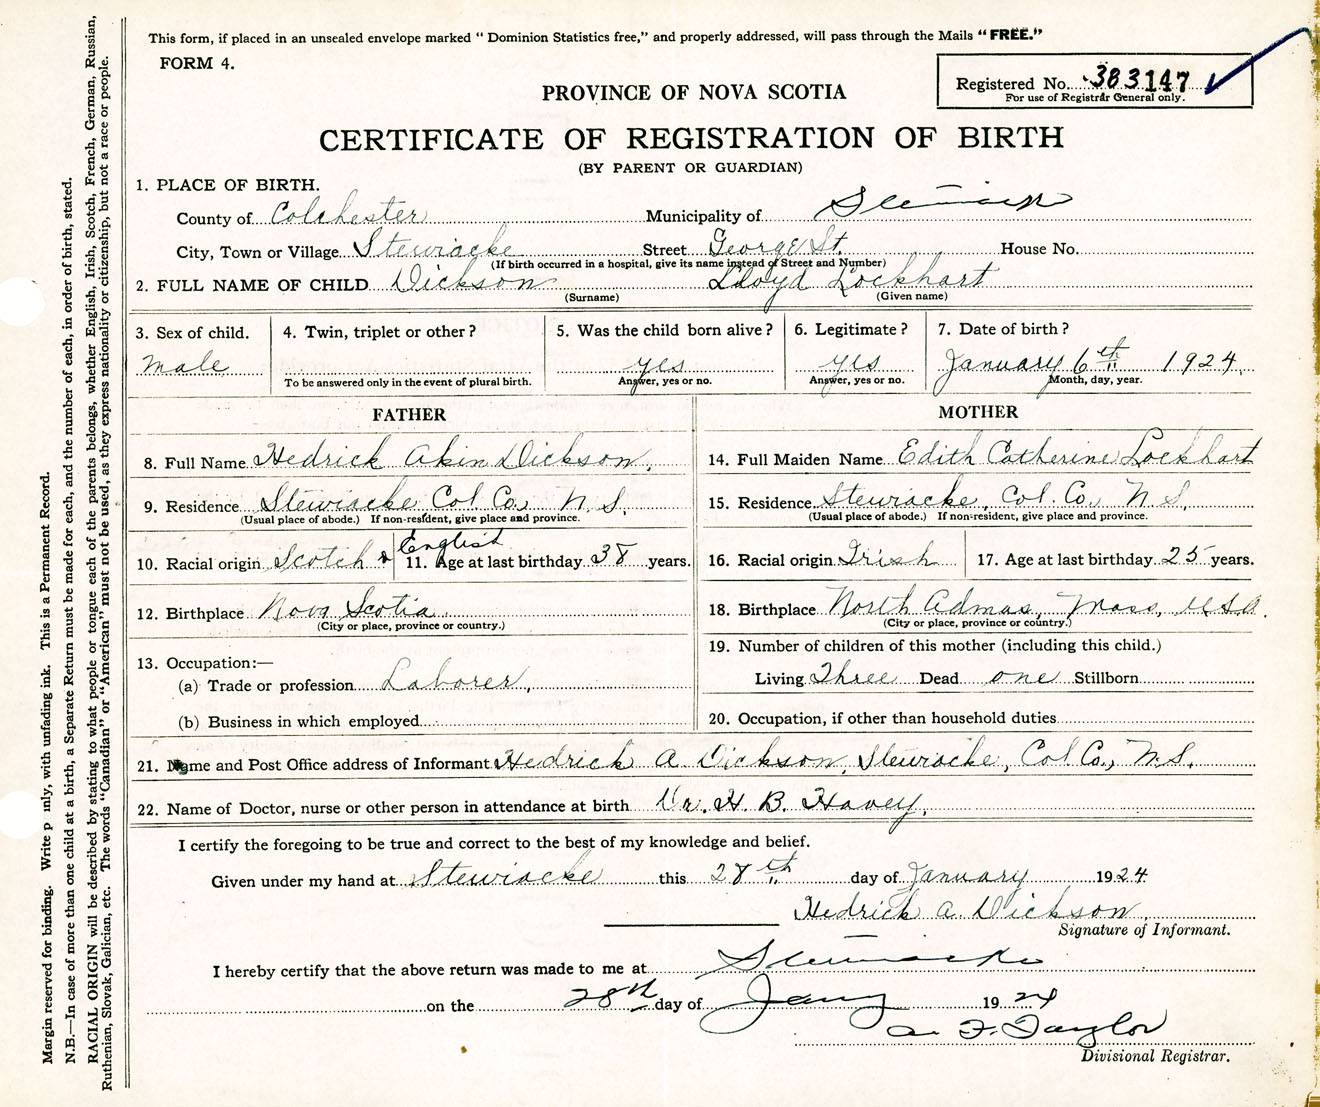 This form, if placed in an unsealed envelope marked " Dominion Statistics free," and properly addressed, will pass through the Mails "FREE."
FORM 4.
Registered No. 383147
For use of Registrar General only.
PROVINCE OF NOVA SCOTIA
CERTIFICATE OF REGISTRATION OF BIRTH
(BY PARENT OR GUARDIAN)
1. PLACE OF BIRTH.
County of Colchester Municipality of Stewiacke
City, Town or Village Stewiacke Street George St. House No.
(If birth occurred in a hospital, give its name instead of Street and Number)
2. FULL NAME OF CHILD Dickson Lloyd Lockhart
(Surname) (Given name)
3. Sex of child. 4. Twin, triplet or other? 5. Was the child born alive? 6. Legitimate? 7. Date of birth?
Male yes yes January 6th 1924.
To be answered only in the event of plural birth. Answer, yes or no. Answer, yes or no. Month, day, year.
FATHER MOTHER
8. Full Name Hedrick Akin Dickson. 14. Full Maiden Name Edith Catherine Lockhart
9. Residence Stewiacke Col Co., N.S. 15. Residence Stewiacke, Col. Co., N.S.
(Usual place of abode.) If non-resident, give place and province. (Usual place of abode.) If non-resident, give place and province.
10. Racial origin Scotch & English 11. Age at last birthday 38 years. 16. Racial origin Irish 17. Age at last birthday 25 years.
12. Birthplace Nova Scotia 18. Birthplace North Admas, Mass, USA.
(City or place, province or country.) (City or place, province or country.)
19. Number of children of this mother (including this child.)
13. Occupation:—
(a) Trade or profession Laborer, Living Three Dead one Stillborn
(b) Business in which employed 20. Occupation, if other than household duties
21. Name and Post Office address of Informant Hedrick A Dickson, Stewiacke, Col Co., N.S.
22. Name of Doctor, nurse or other person in attendance at birth Dr. H. B. Havey.
I certify the foregoing to be true and correct to the best of my knowledge and belief.
Given under my hand at Stewiacke this 28th day of January 1924
Hedrick A. Dickson.
Signature of Informant.
I hereby certify that the above return was made to me at Stewiacke
on the 28th day of Jany 1924
F. Taylor
Divisional Registrar.
Margin reserved for binding. Write p inly, with unfading ink. This is a Permanent Record.
N.B.—In case of more than one child at a birth, a Separate Return must be made for each, and the number of each, in order of birth, stated.
RACIAL ORIGIN will be described by stating to what people or tongue each of the parents belongs, whether English, Irish, Scotch, French, German, Russian,
Ruthenian, Slovak, Galician, etc. The words "Canadian" or "American" must not be used, as they express nationality or citizenship, but not a race or people.